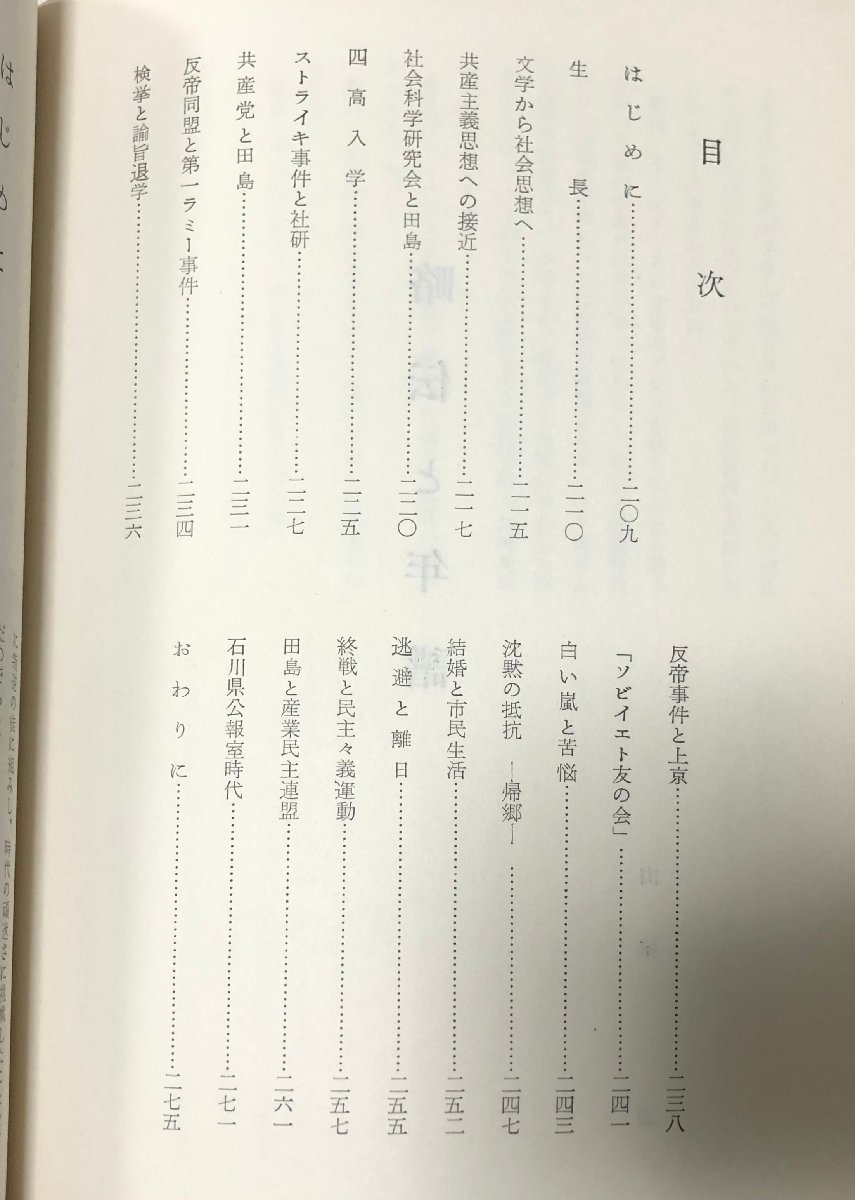 目次
はじめに……二〇九
生長……二一〇
文学から社会思想へ……二一五
共産主義思想への接近……二一七
社会科学研究会と田島……二二〇
四高入学……二二五
ストライキ事件と社研……二二七
共産党と田島……二三一
反帝同盟と第一ラミー事件……二三四
検挙と諭旨退学……二三六
反帝事件と上京……二三八
「ソビイエト友の会」……二四一
白い嵐と苦悩……二四三
沈黙の抵抗 ―帰郷―……二四七
結婚と市民生活……二五二
逃避と離日……二五五
終戦と民主々義運動……二五七
田島と産業民主連盟……二六一
石川県公報室時代……二七一
おわりに……二七五
はじめに
略伝と年譜